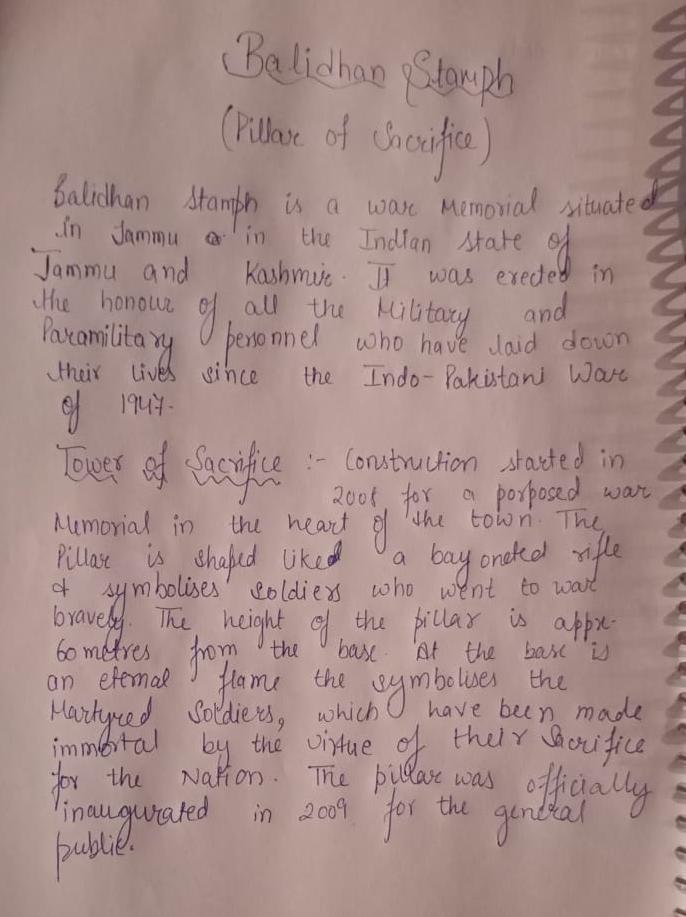 Balidhan Stamph
(Pillar of Sacrifice)
Balidhan Stamph is a war Memorial situated
in Jammu in the Indian state of
Jammu and Kashmir. It was erected in
the honour of all the Military and
Paramilitary personnel who have laid down
their lives since the Indo-Pakistani War
of 1947.
Tower of Sacrifice :- Construction started in
2008 for a porposed war
Memorial in the heart of the town. The
Pillar is shaped liked a bayoneted rifle
& symbolises soldiers who went to war
bravely. The height of the pillar is appx-
60 metres from the base. At the base is
an eternal flame the symbolises the
Martyred Soldiers, which have been made
immortal by the virtue of their Sacrifice
for the Nation. The pillar was officially
inaugurated in 2009 for the general
public.